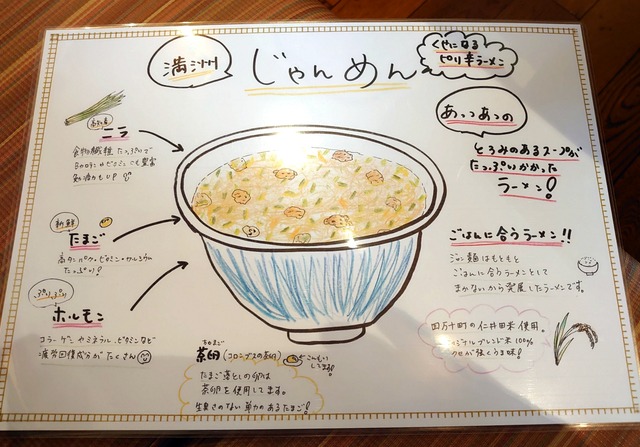 満洲
じゃんめん
くせになる
ピリ辛ラーメン
あっつあつの
とろみのあるスープが
たっぷりかかった
ラーメン!
ニラ
食物繊維たっぷりで
ビタミンCも豊富
免疫力もUP
新鮮
たまご
高タンパク・ビタミン・カルシウム
たっぷり!
ぷりっぷり
ホルモン
コラーゲンやミネラル、ビタミンなど
疲労回復成分がたくさん
ごはんに合うラーメン!!
ジャン麺はもともと
ごはんに合うラーメンとして
まかないから発展したラーメンです。
四万十町の仁井田米使用。
オリジナルブレンド米100%
クセが強くうま味!
ちゃたまご
茶卵(コロンブスの茶卵)
たまご落としの卵は
茶卵を使用してます。
生臭さのない弾力のあるたまご!